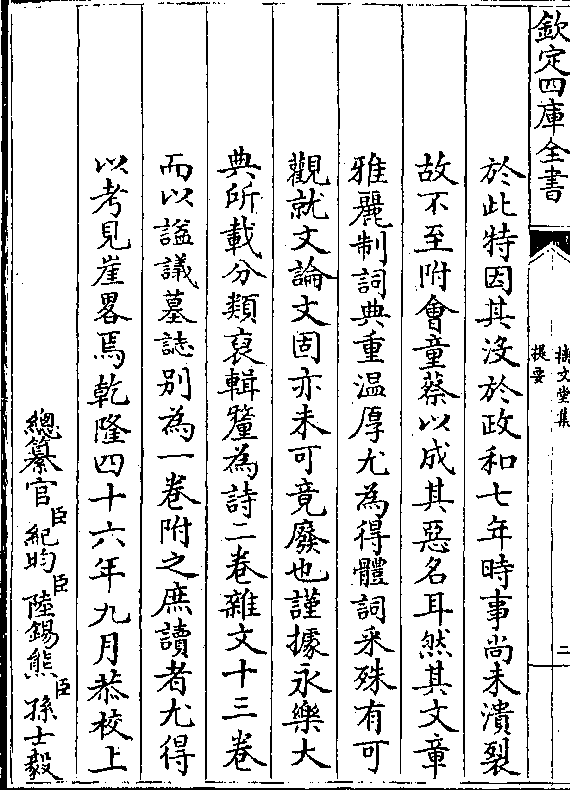 欽定四庫全書
摛文堂集
提要
二
於此特因其沒於政和七年時事尚未潰裂
故不至附會童蔡以成其惡名耳然其文章
雅麗制詞典重温厚尤為得體詞采殊有可
觀就文論文固亦未可竟廢也謹據永樂大
典所載分類裒輯釐為詩二卷雜文十三卷
而以諡議墓誌別為一卷附之庶讀者尤得
以考見崖畧焉乾隆四十六年九月恭校上
總纂官臣紀昀臣陸錫熊臣孫士毅